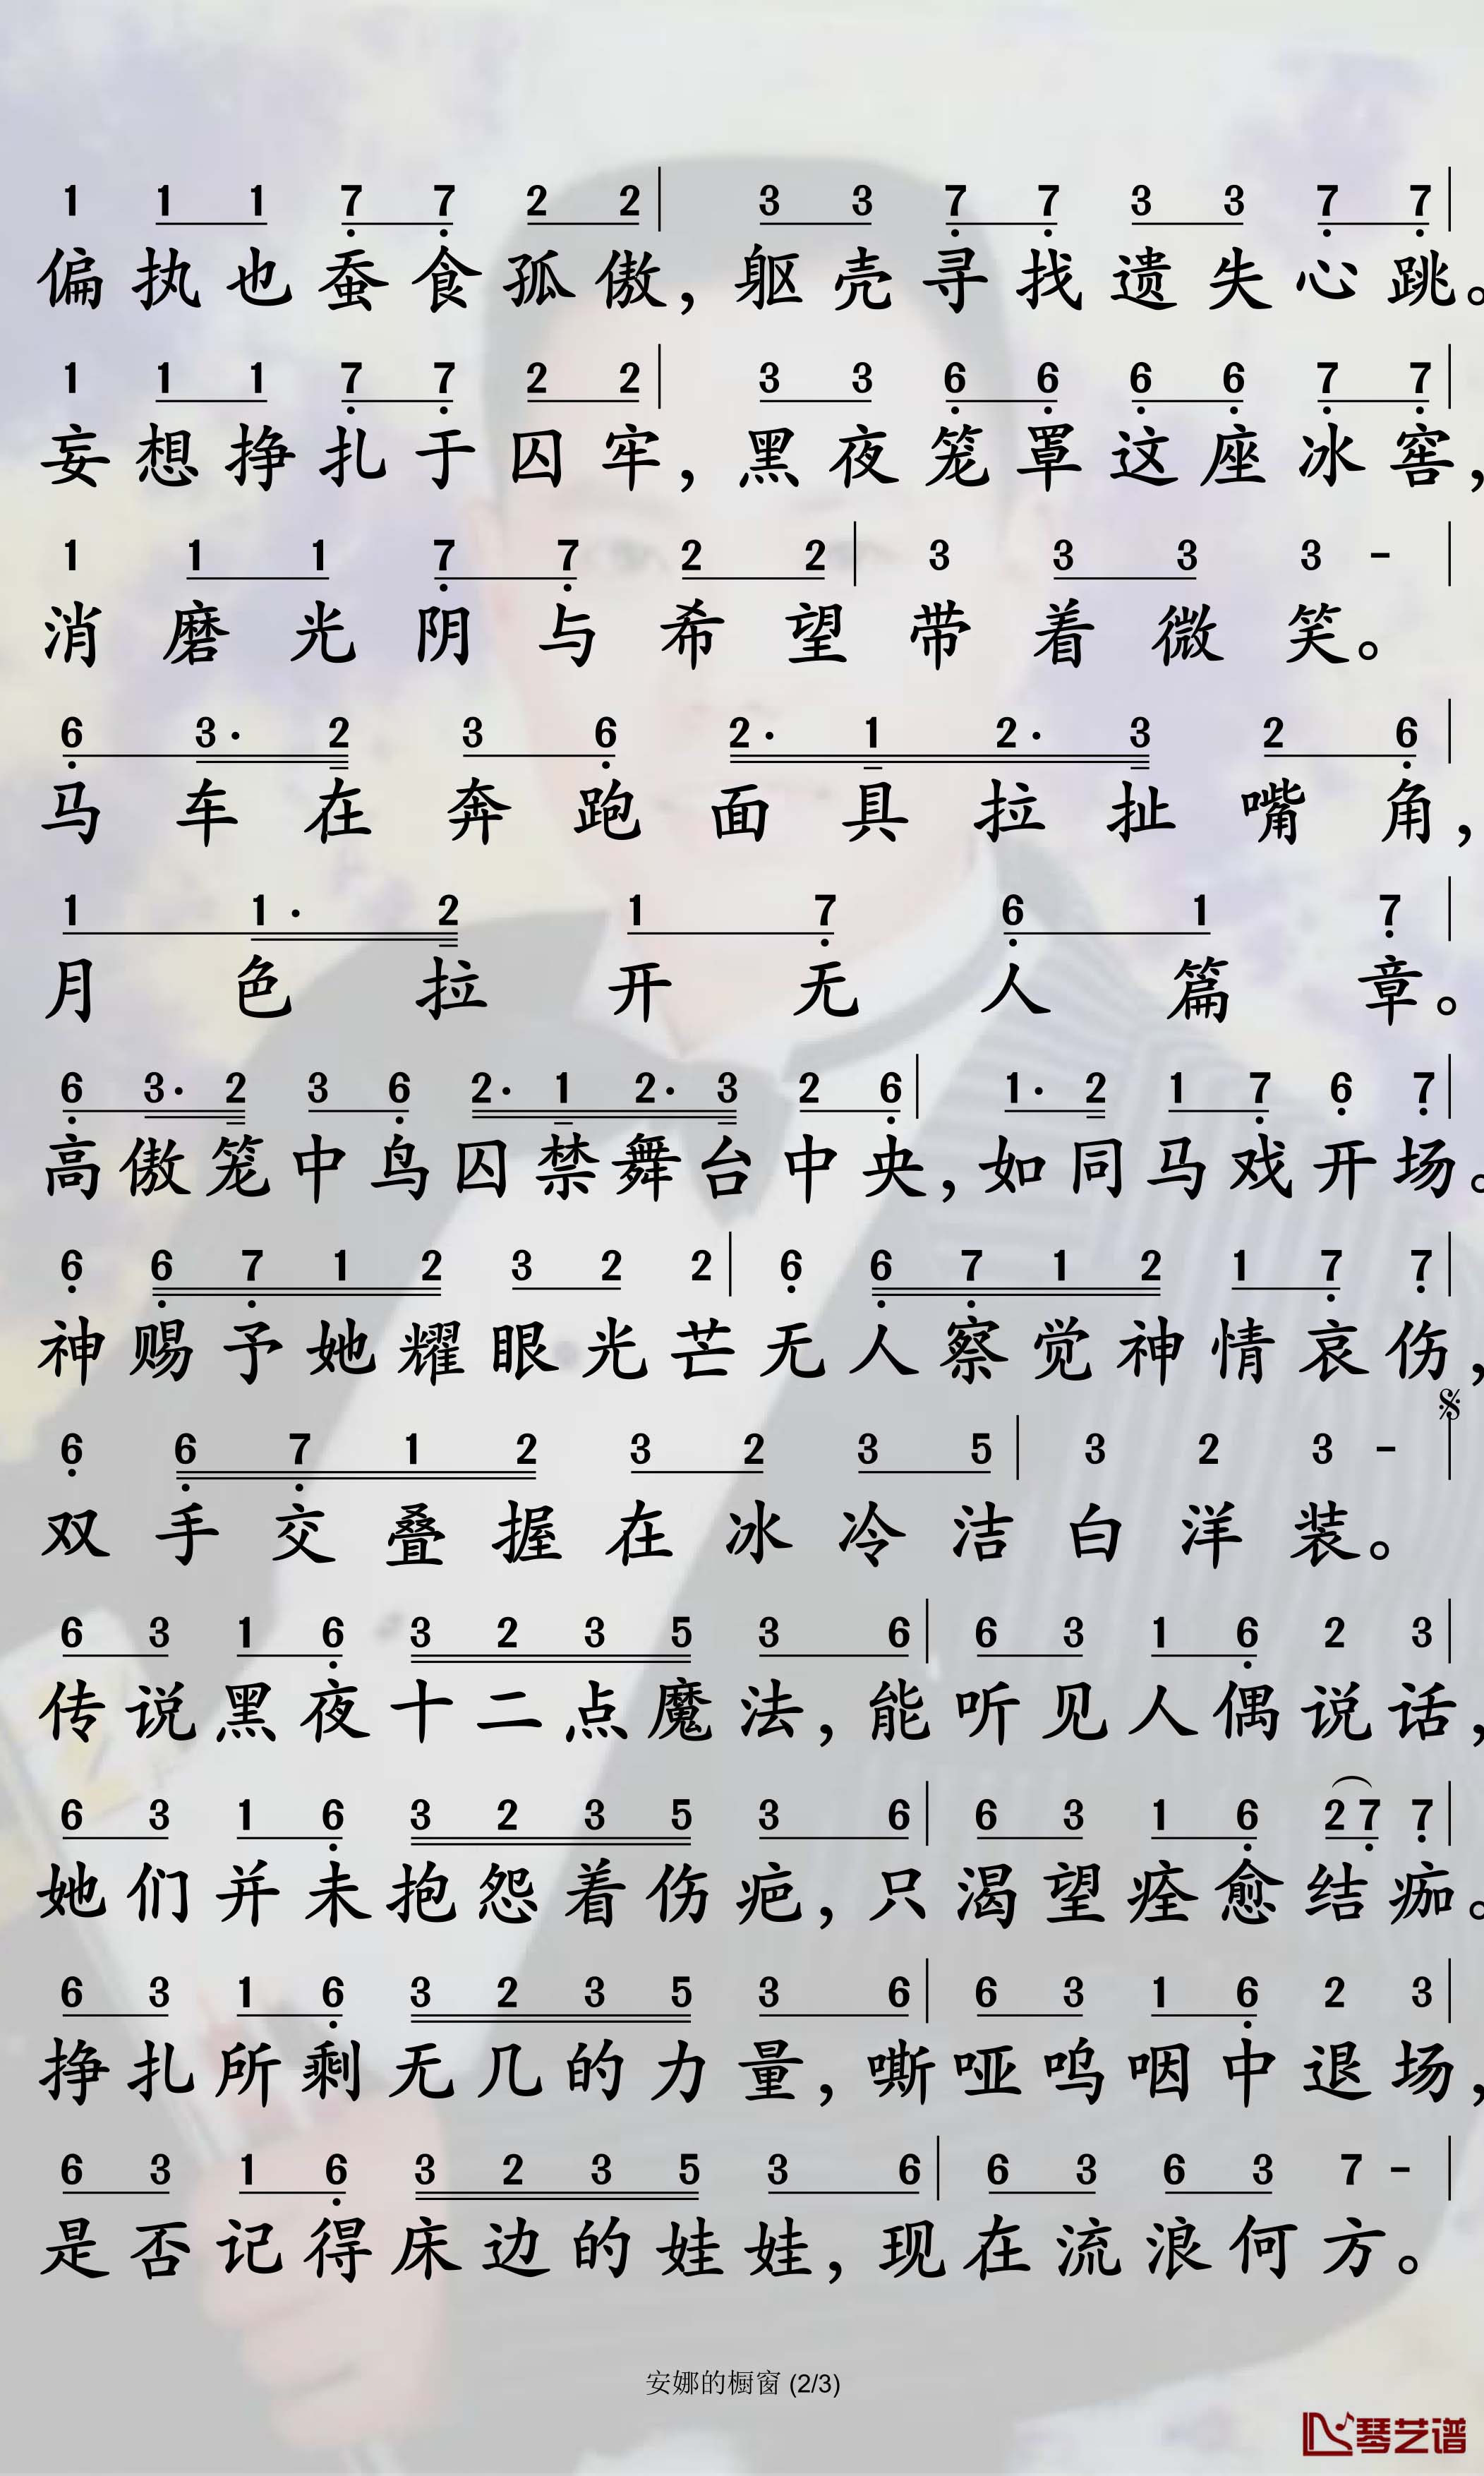 1 1 1 7 7 2 2 | 3 3 7 7 3 3 7 7 |
偏执也蚕食孤傲，躯壳寻找遗失心跳。
1 1 1 7 7 2 2 | 3 3 6 6 6 6 7 7 |
妄想挣扎于囚牢，黑夜笼罩这座冰窖，
1 1 1 7 7 2 2 | 3 3 3 3 - |
消磨光阴与希望带着微笑。
6 3· 2 3 6 2· 1 2· 3 2 6 |
马车在奔跑面具拉扯嘴角，
1 1· 2 1 7 6 1 7 |
月色拉开无人篇章。
6 3· 2 3 6 2· 1 2· 3 2 6 | 1· 2 1 7 6 7 |
高傲笼中鸟囚禁舞台中央，如同马戏开场。
6 6 7 1 2 3 2 2 | 6 6 7 1 2 1 7 7 |
神赐予她耀眼光芒无人察觉神情哀伤，
6 6 7 1 2 3 2 3 5 | 3 2 3 - |
双手交叠握在冰冷洁白洋装。
6 3 1 6 3 2 3 5 3 6 | 6 3 1 6 2 3 |
传说黑夜十二点魔法，能听见人偶说话，
6 3 1 6 3 2 3 5 3 6 | 6 3 1 6 2 7 7 |
她们并未抱怨着伤疤，只渴望痊愈结痂。
6 3 1 6 3 2 3 5 3 6 | 6 3 1 6 2 3 |
挣扎所剩无几的力量，嘶哑呜咽中退场，
6 3 1 6 3 2 3 5 3 6 | 6 3 6 3 7 - |
是否记得床边的娃娃，现在流浪何方。
安娜的橱窗 (2/3)
琴艺谱